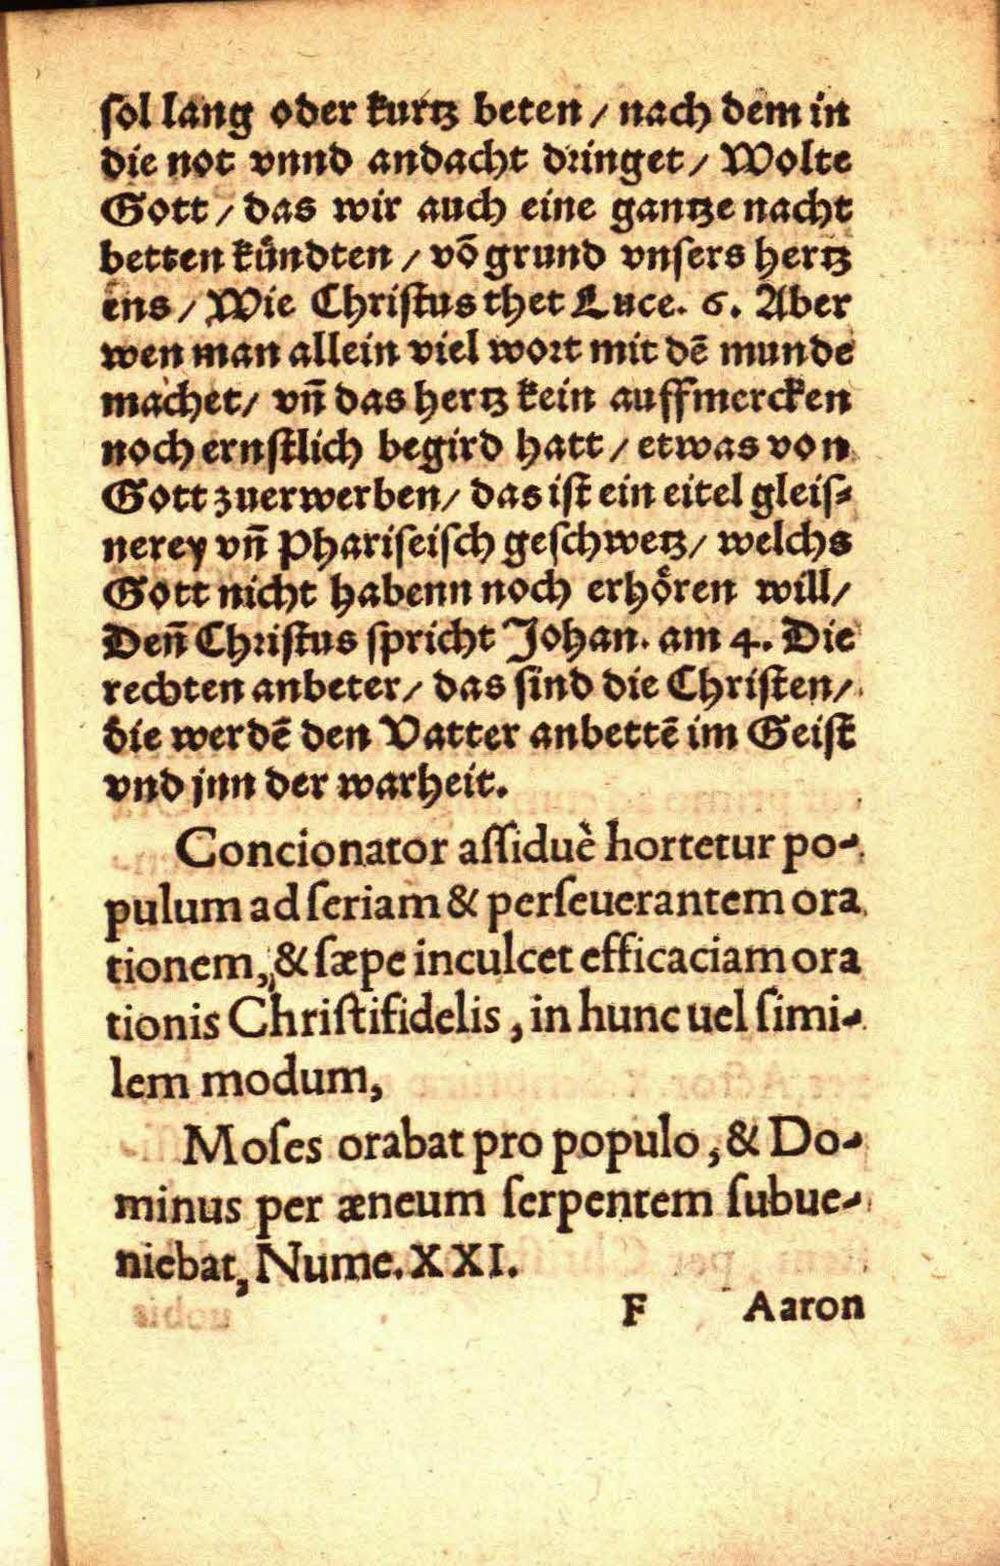 sol lang oder kurtz beten / nach dem in
die not vnnd andacht dringet / Wolte
Gott / das wir auch eine gantze nacht
betten kündten / võ grund vnsers hertz
ens / Wie Christus thet Luce. 6. Aber
wen man allein viel wort mit dē munde
machet / vñ das hertz kein auffmercken
noch ernstlich begird hatt / etwas von
Gott zuerwerben / das ist ein eitel gleis⸗
nerey vñ Phariseisch geschwetz / welchs
Gott nicht habenn noch erhören will /
Deñ Christus spricht Johan. am 4. Die
rechten anbeter / das sind die Christen /
die werdē den Vatter anbettē im Geist
vnd jnn der warheit.
Concionator aſſiduè hortetur po-
pulum ad ſeriam & perſeuerantem ora
tionem, & ſæpe inculcet efficaciam ora
tionis Chriſtifidelis, in hunc uel ſimi-
lem modum,
Moſes orabat pro populo, & Do-
minus per æneum ſerpentem ſubue-
niebat, Nume. XXI.
F Aaron